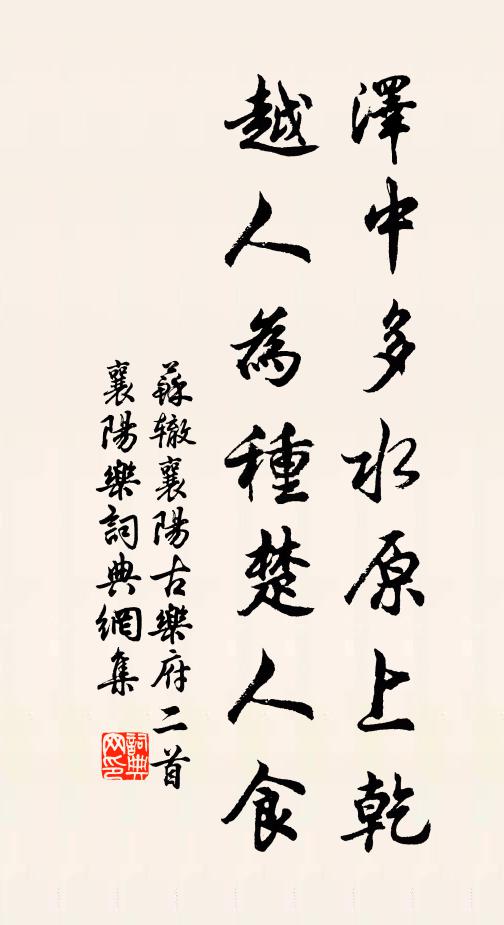 澤中多水原上乾
越人為種楚人食
蘇轍襄陽古樂府二首
襄陽樂詞典網集
詞典
网印